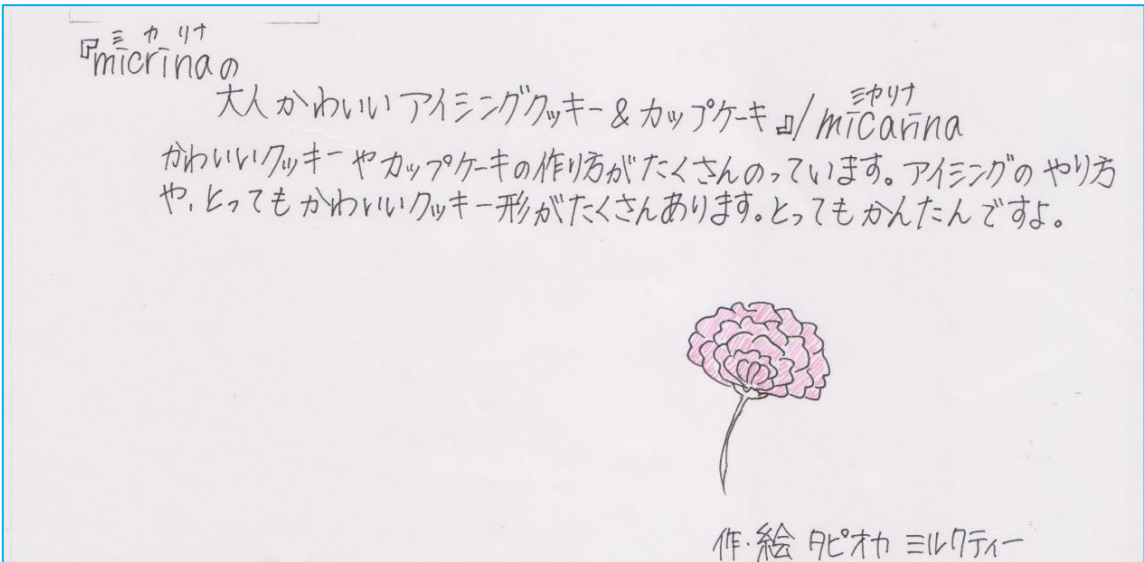 ミカリナ
『micrinaの
ミカリナ
大人かわいいアイシングクッキー&カップケーキ』/micarina
かわいいクッキーやカップケーキの作り方がたくさんのっています。アイシングのやり方
や、とってもかわいいクッキー形がたくさんあります。とってもかんたんですよ。
作・絵 タピオカ ミルクティー